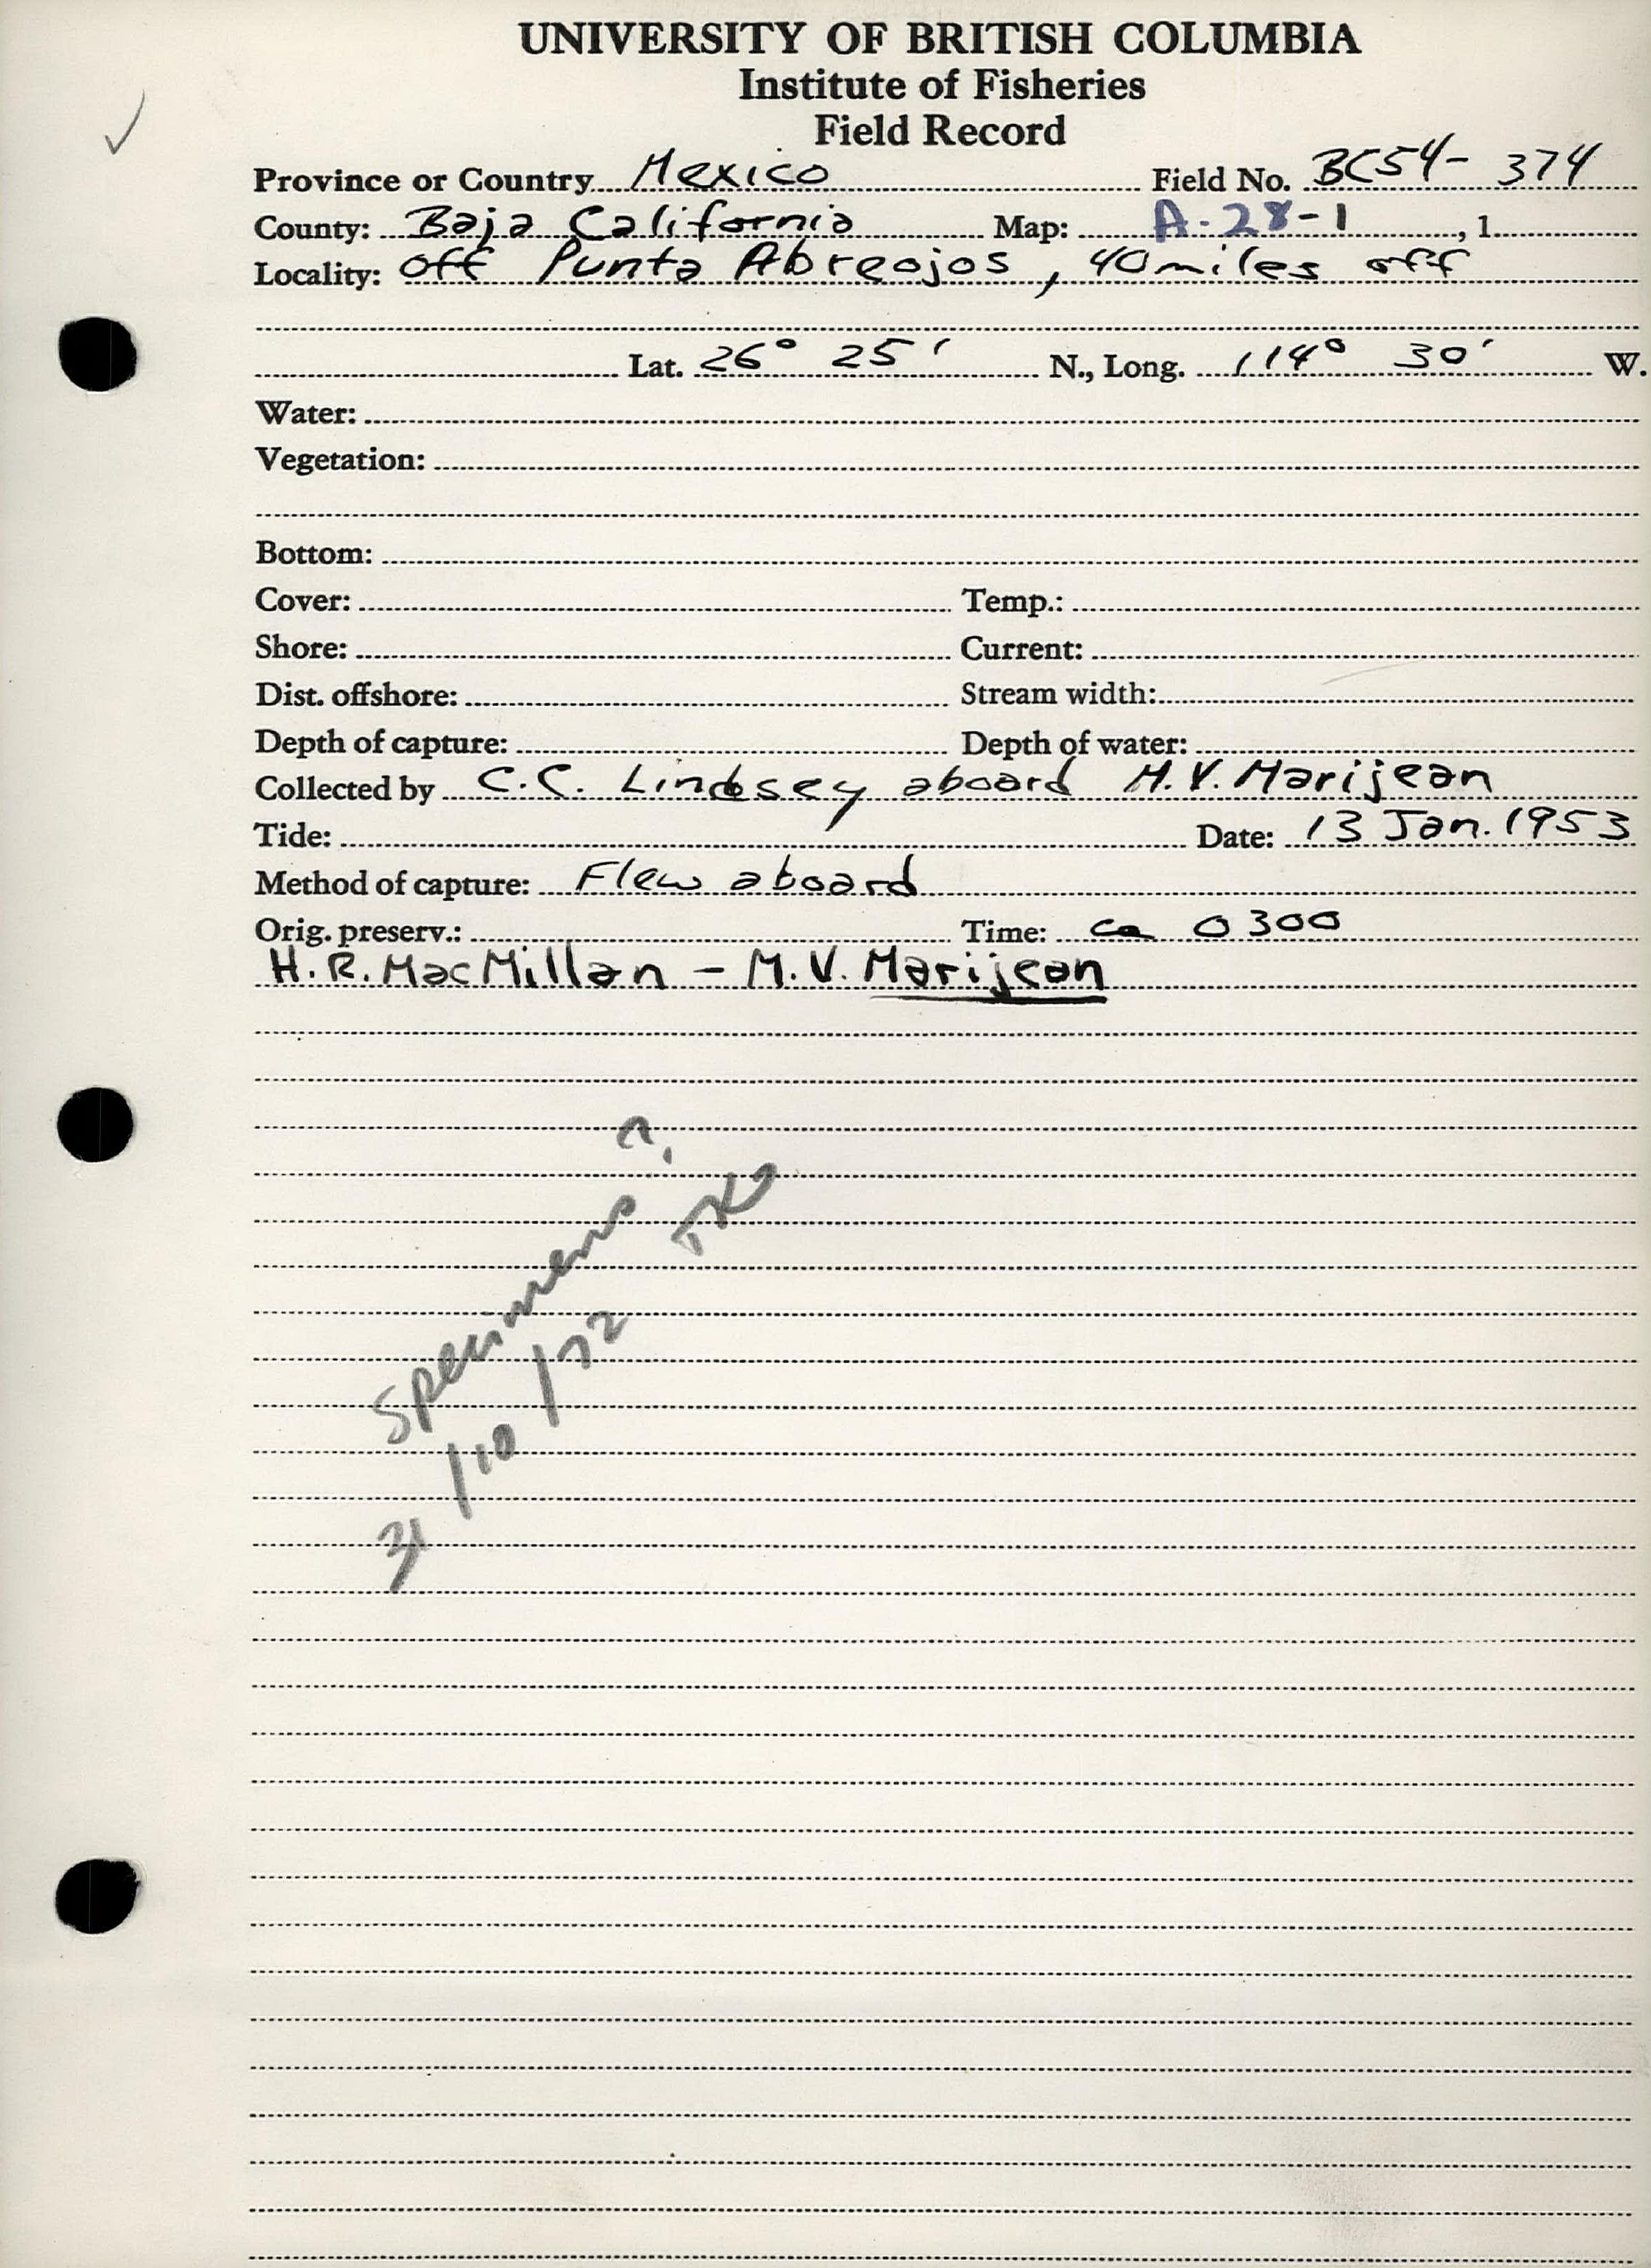 UNIVERSITY OF BRITISH COLUMBIA
Institute of Fisheries
Field Record
Province or Country Mexico Field No. BC54-374
County: Baja California Map: A-28-1, 1
Locality: off Punta Abreojos, 40 miles off
Lat. 26° 25' N., Long. 114° 30' W.
Water:
Vegetation:
Bottom:
Cover: Temp.:
Shore: Current:
Dist. offshore: Stream width:
Depth of capture: Depth of water:
Collected by C.C. Lindsey aboard M.V. Marijean
Tide: Date: 13 Jan. 1953
Method of capture: Flew aboard
Orig. preserv.: Time: ca 0300
H.R. MacMillan - M.V. Marijean
Specimens?
31/10/72